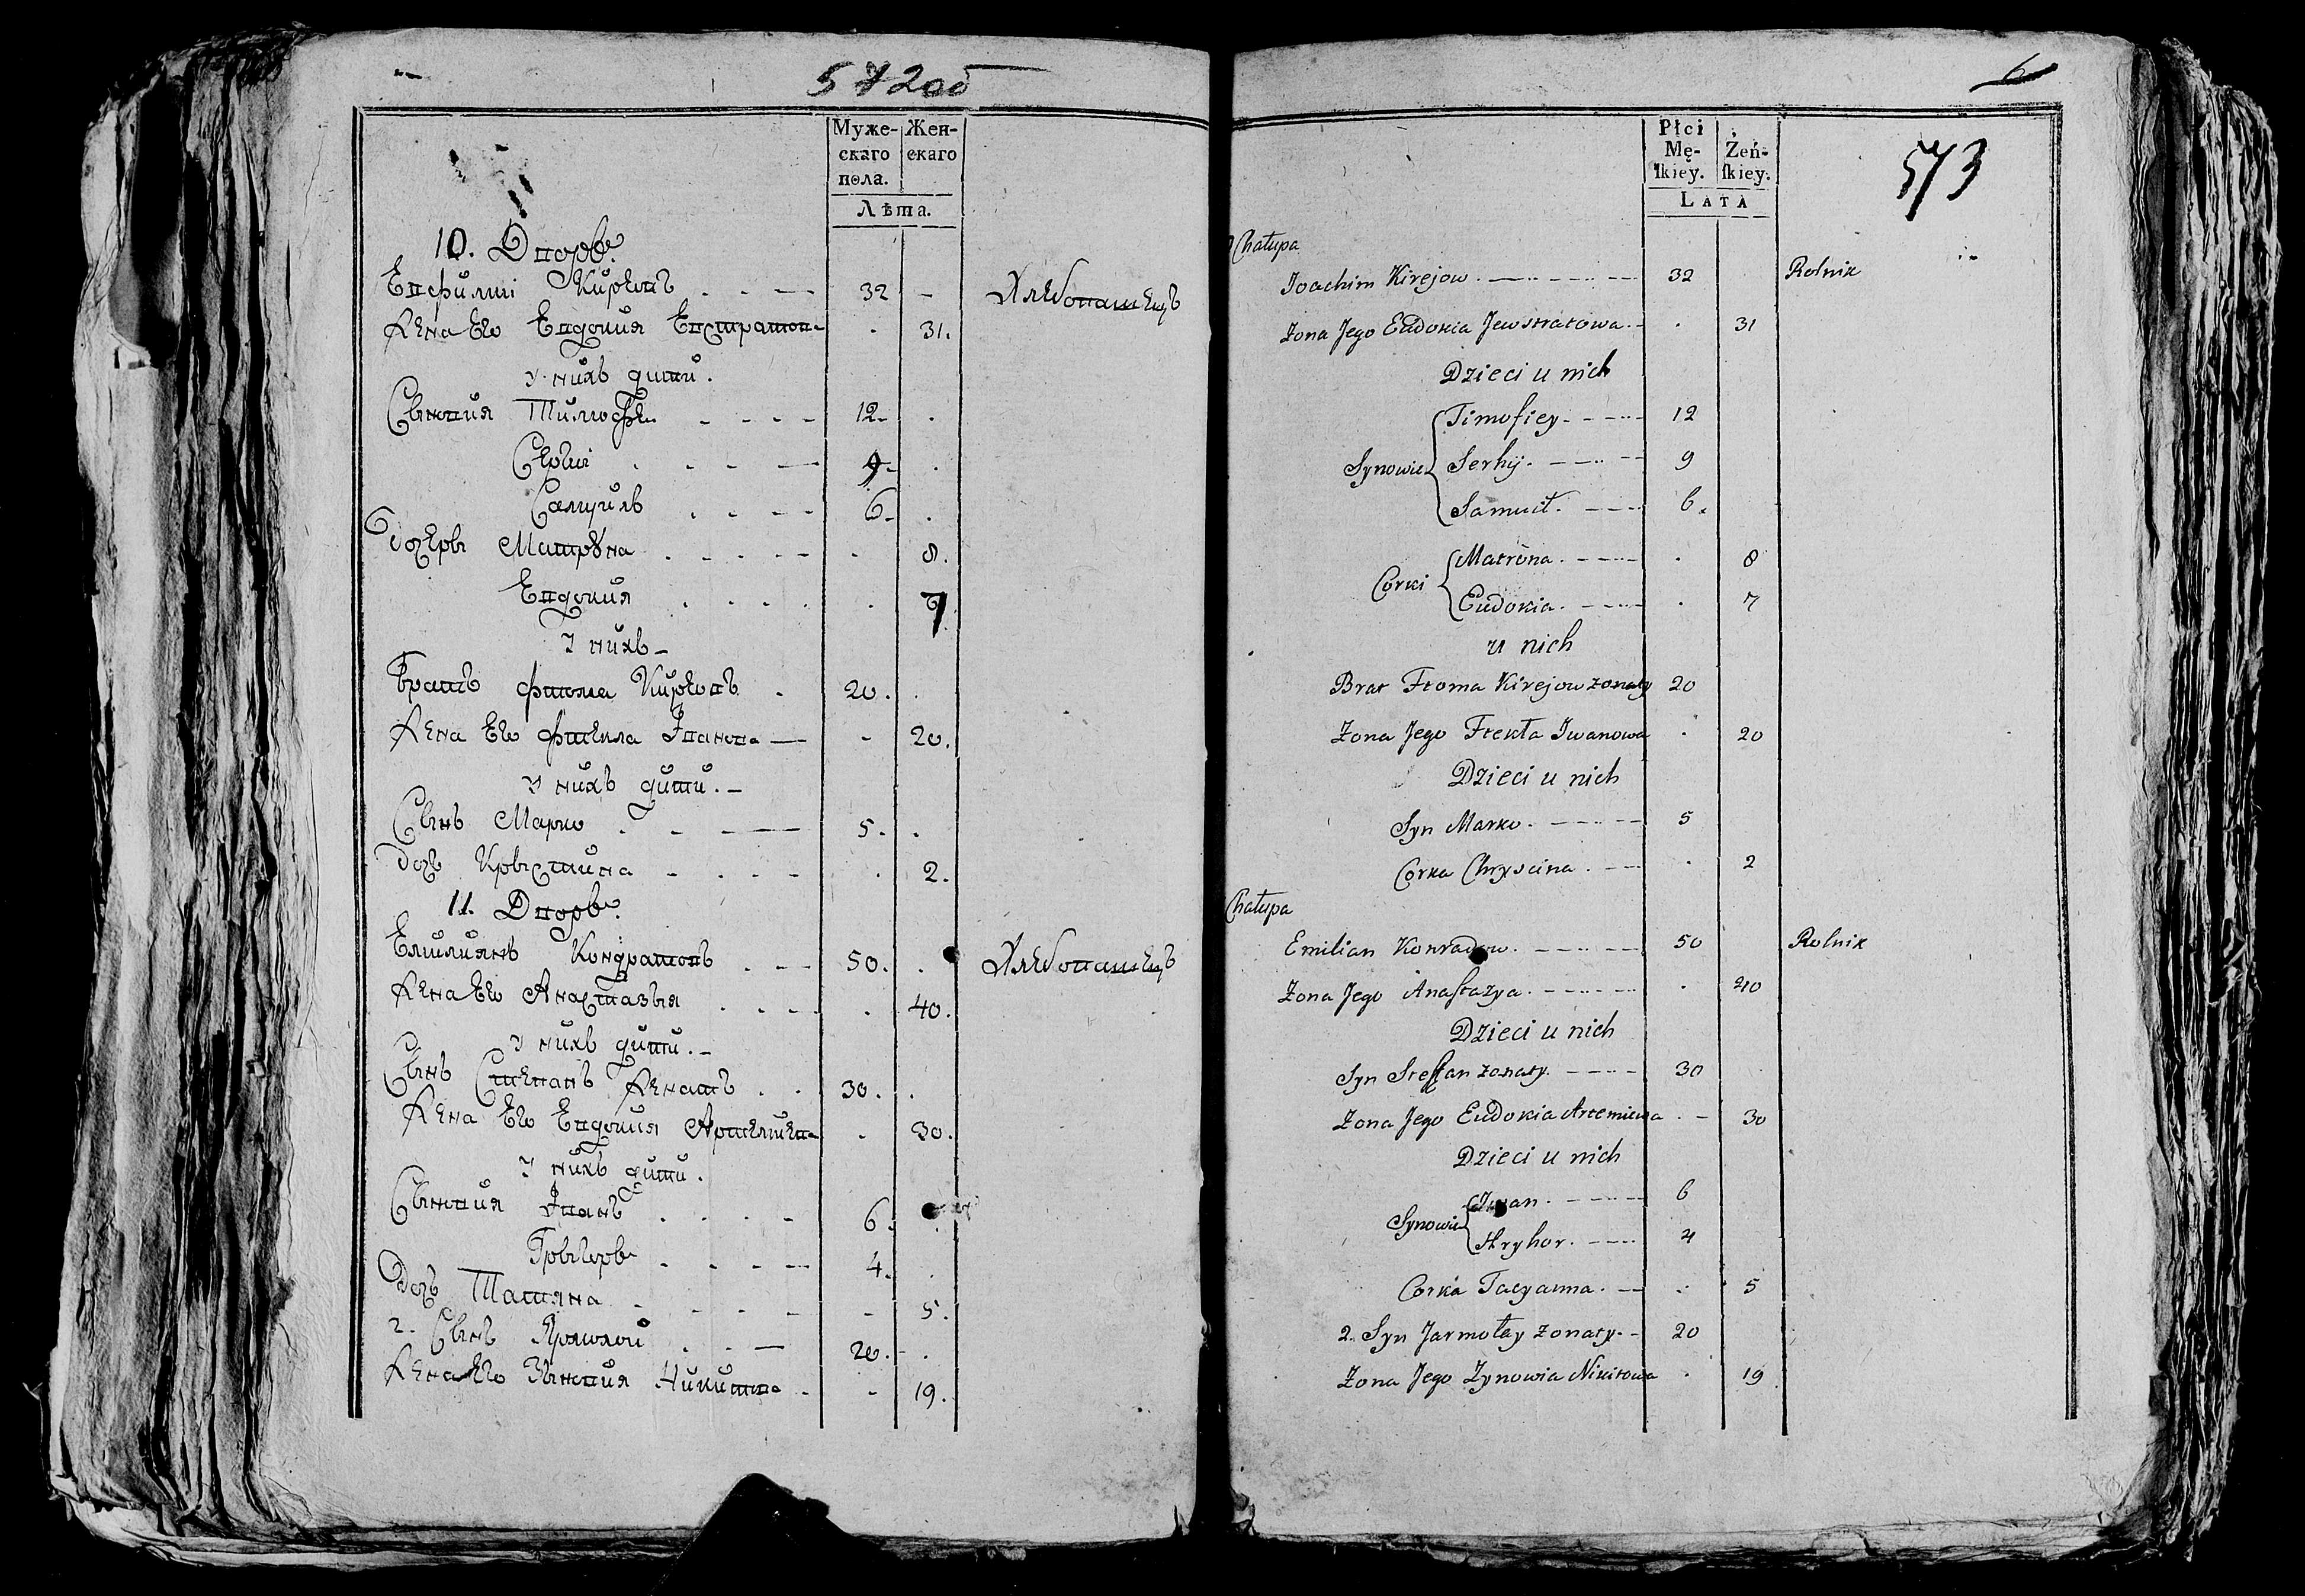 572 об
Муже-
скаго
пола.
Жен-
скаго
Лѣта.
10. Дворъ.
Евфимiй Кирѣевъ 32 - Хлебопашецъ
Жена Его Евдокия Евстратов- . 31.
У нихъ дити.
Сыновия Тимофе 12 .
Сергiй 9 .
Самуилъ 6 .
дочеры Матрона . 8.
Евдокия . 7
У нихъ -
Братъ Фтома Кирѣевъ 20. .
Жена Его Фтекла Iванова - 20.
У нихъ дити. -
Сынъ Марко 5. .
дочъ Крыстина . 2.
11. Дворъ.
Емилиянъ Кондратовъ 50. . Хлебопашецъ
Жена Его Анастазыя . 40.
У нихъ дити. -
Сынъ Степанъ Женатъ 30. .
Жена Его Евдокия Артемиев- . 30.
У нихъ дити.
Сыновия Iванъ 6. .
Грыгоръ 4. .
Дочъ Татяна - 5.
2. Сынъ Ярмолой 20. .
Жена Его Зыновия Никитова - 19.
6
573
Płci
Mę-
skiey.
Żeń-
skiey.
LATA
Chałupa
Joachim Kirejow. 32 Rolnik
Zona Jego Eudokia Jewstratowa. . 31
Dzieci u nich
Synowie Timofiey. 12
Serhij. 9
Samuił. 6.
Corki Matrona. . 8
Eudokia. . 7
u nich
Brat Ftoma Kirejow zonaty 20
Zona Jego Ftekła Iwanowa . 20
Dzieci u nich
Syn Marko. 5
Corka Chryscina. . 2
Chałupa
Emilian Konradow. 50 Rolnik
Zona Jego Anastazya. . 40
Dzieci u nich
Syn Stefan zonaty. 30
Zona Jego Eudokia Artemiewa . - 30
Dzieci u nich
Synowie Iwan. 6
Hryhor. 4
Corka Tacyanna. . 5
2. Syn Jarmołay zonaty. 20
Zona Jego Zynowia Nikitowa . 19